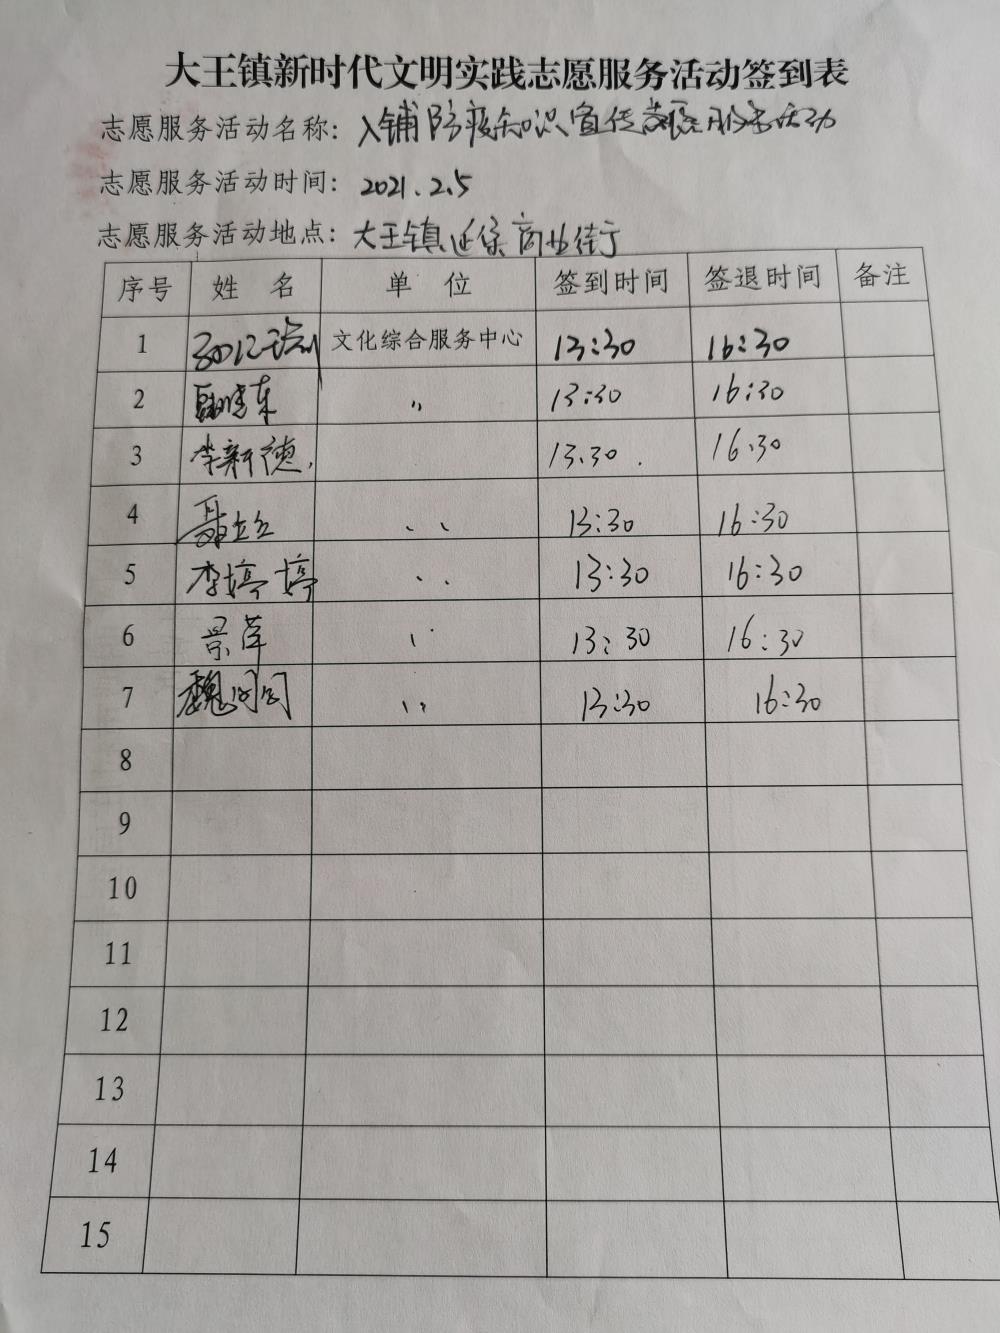 大王镇新时代文明实践志愿服务活动签到表
志愿服务活动名称: 入铺防疫知识宣传志愿服务活动
志愿服务活动时间: 2021.2.5
志愿服务活动地点: 大王镇延集商业街
序号 姓名 单位 签到时间 签退时间 备注
1 文化综合服务中心 13:30 16:30
2 〃 13:30 16:30
3 李新德 13.30 16.30
4 聂丘丘 〃 13:30 16:30
5 李婷婷 〃 13:30 16:30
6 景萍 〃 13:30 16:30
7 魏闪闪 〃 13:30 16:30
8
9
10
11
12
13
14
15